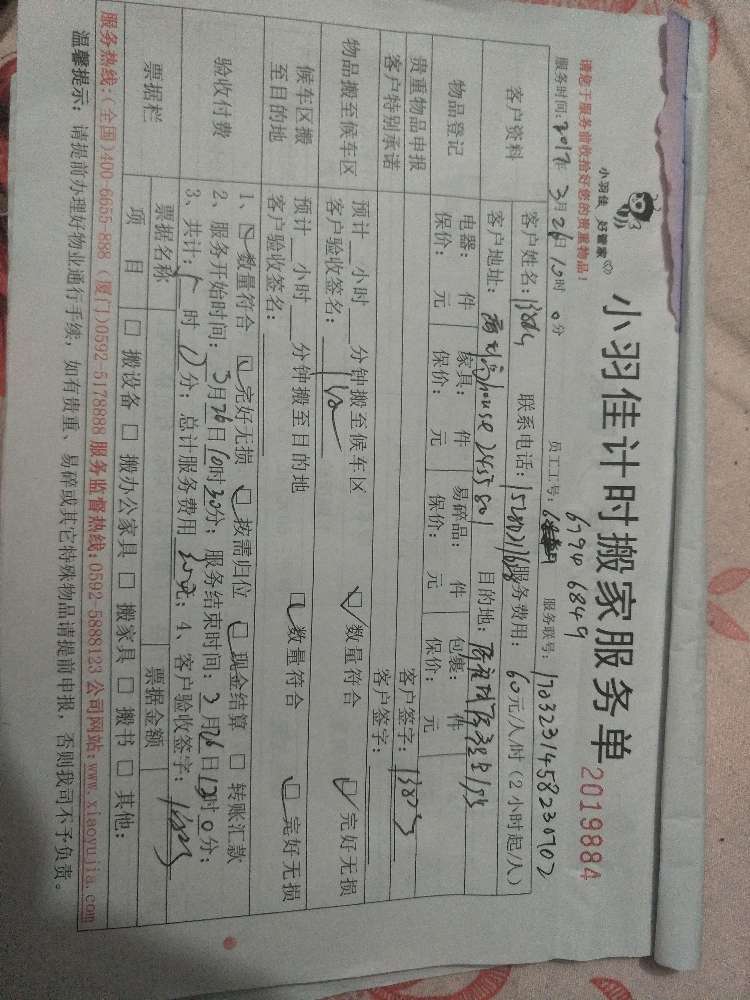 小羽佳 好管家
小羽佳计时搬家服务单
2019884
请您于服务前收拾好您的贵重物品!
员工工号: 6794 6849
服务时间: 2017年 3月 26日 10时 0分 服务联号: 1703231458230702
客户资料
客户姓名: 联系电话: 服务费用: 60元/人/时 (2小时起/人)
客户地址: house 目的地:
物品登记
电器: 件 家具: 件 易碎品: 件 包裹: 件
保价: 元 保价: 元 保价: 元 保价: 元
贵重物品申报
客户签字:
客户特别承诺
客户签字:
物品搬至候车区
预计 小时 分钟搬至候车区 数量符合 完好无损
客户验收签名:
候车区搬至目的地
预计 小时 分钟搬至目的地 数量符合 完好无损
客户验收签名:
验收付费
1、数量符合 完好无损 按需归位 现金结算 □ 转账汇款
2、服务开始时间: 3月26日10时30分; 服务结束时间: 3月26日 时0分;
3、共计: 时 分; 总计服务费用 元; 4、客户验收签字:
票据栏
票据名称 票据金额
项目 □ 搬设备 □ 搬办公家具 □ 搬家具 □ 搬书 □ 其他:
服务热线:(全国)400-6655-888 (厦门)0592-5178888 服务监督热线:0592-5888123 公司网站:www.xiaoyujia.com
温馨提示: 请提前办理好物业通行手续, 如有贵重、易碎或其它特殊物品请提前申报, 否则我司不予负责。